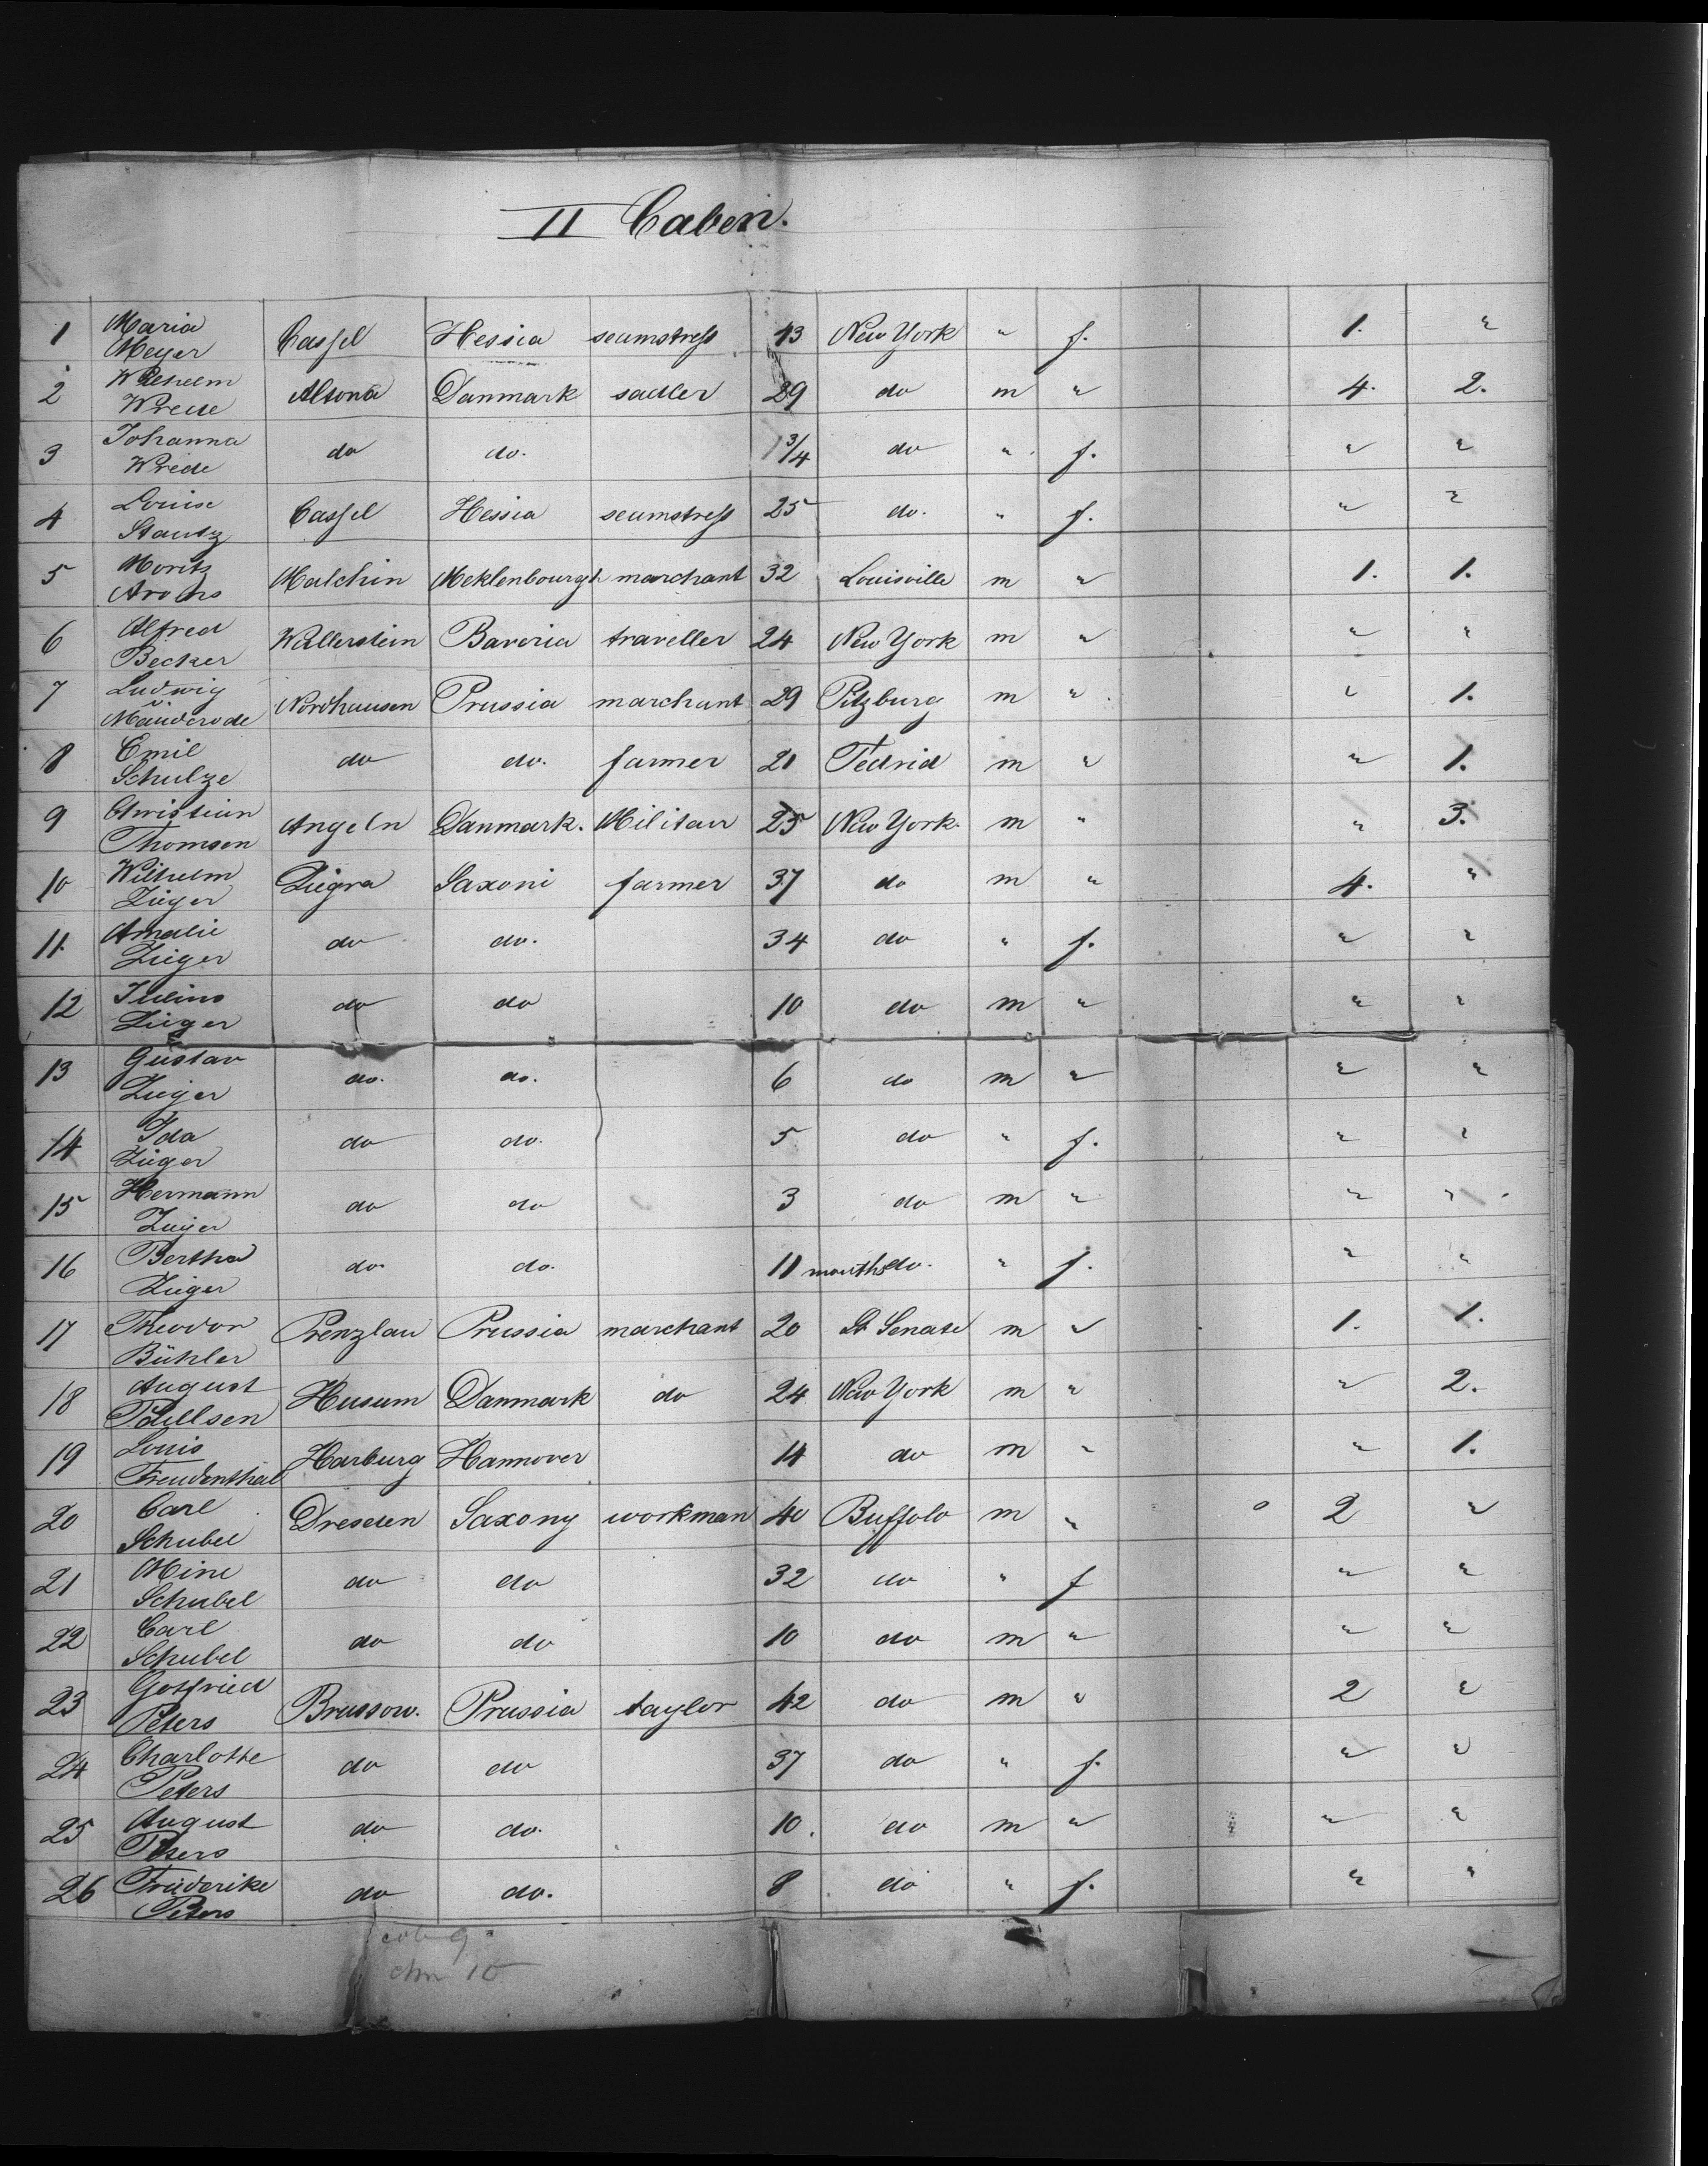 II Cabin.
1 Maria Meyer Cassel Hessia seumstress 43 New York " f. 1. "
2 Wilhelm Wrede Altona Danmark sadler 29 do m " 4. 2.
3 Johanna Wrede do do. 1 3/4 do " f. " "
4 Louise Stautz Cassel Hessia seumstress 25 do. " f. " "
5 Moritz Arons Malchin Meklenbourg marchant 32 Louisville m " 1. 1.
6 Alfred Becker Wallerstein Bavoria traveller 24 New York m " " "
7 Ludwig Mäuderode Nordhausen Prussia marchant 29 Pitzburg m " " 1.
8 Emil Schulze do do. farmer 21 m " " 1.
9 Christian Thomsen Angeln Danmark. Militair 25 New York. m " " 3.
10 Wilhelm Zieger Ziegra Saxoni farmer 37 do m " 4. "
11. Amalie Zieger do do. 34 do " f. " "
12 Julius Zieger do do 10 do m " " "
13 Gustav Zieger do. do. 6 do m " " "
14 Ida Zieger do do. 5 do " f. " "
15 Hermann Zieger do do 3 do m " " "
16 Bertha Zieger do. do. 11 months do. " f. " "
17 Theodor Bühler Prenzlau Prussia marchant 20 m " 1. 1.
18 August Husum Danmark do 24 New York m " " 2.
19 Louis Freudenthal Harburg Hannover 14 do m " " 1.
20 Carl Schubel Dresden Saxony workman 40 Buffolo m " 2 "
21 Mine Schubel do do 32 do " f " "
22 Carl Schubel do do 10 do m " " "
23 Gotfried Peters Brussow. Prussia taylor 42 do m " 2 "
24 Charlotte Peters do do 37 do " f. " "
25 August Peters do do. 10. do m " " "
26 Friederike Peters do do. 8 do " f. " "